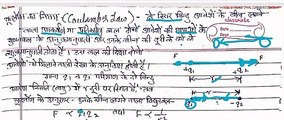 कूलॉम का नियम (Coulomb's Law) - दो स्थिर बिन्दु आवेशों के बीच लगने
वाला आकर्षण या प्रतिकर्षण बल दोनों आवेशों की मात्राओं के
गुणनफल के अनुक्रमानुपाती और उनके बीच की दूरी के वर्ग के
व्युत्क्रमानुपाती होता है। उस बल की दिशा दोनों
आवेशों को मिलाने वाली रेखा के अनुदिश होती है।
माना q₁ व q₂ परिमाण के दो बिन्दु
आवेश निर्वात (वायु) में r दूरी पर स्थित हैं, तब
कूलॉम के अनुसार - इनके बीच लगने वाला विद्युत बल-
F ∝ q₁q₂ तथा F ∝
classmate
Date
Page
+q₁
+q₂
r